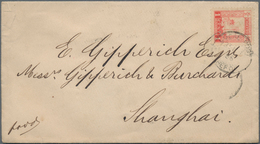 E. Gipperich Esqre
Messrs Gipperich & Burchardi
Shanghai.